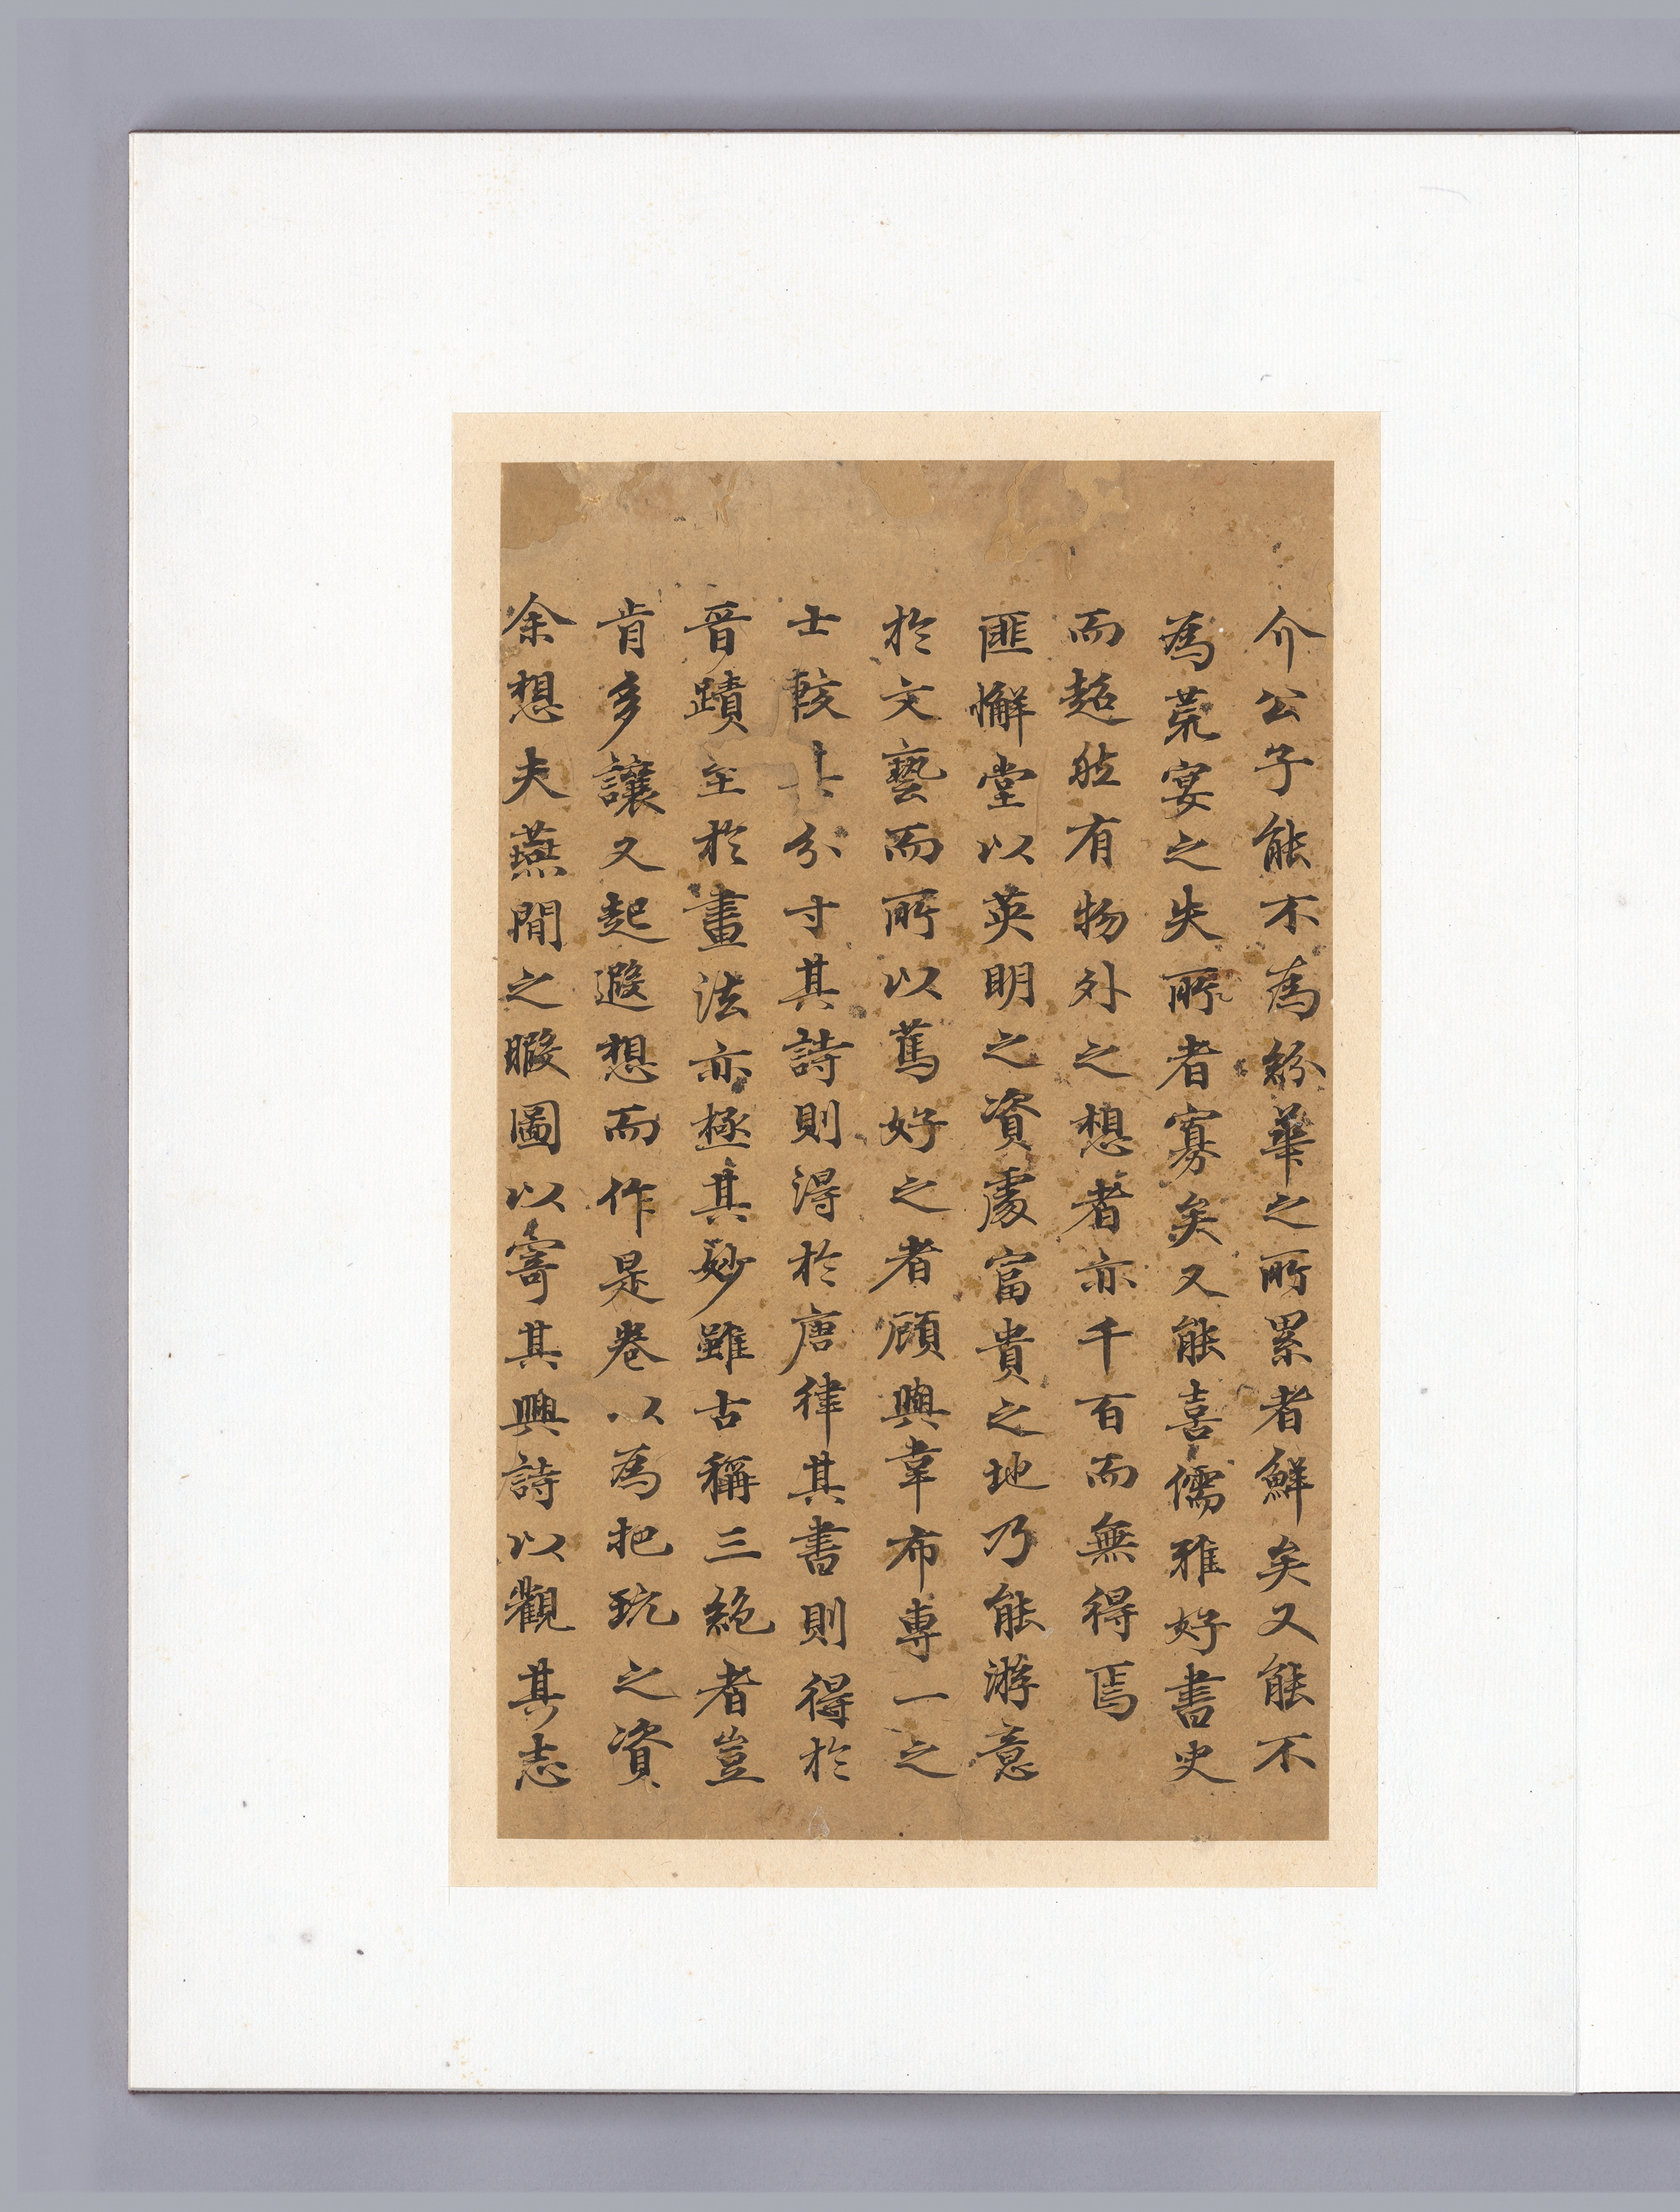 介公子能不為紛華之所累者鮮矣又能不
為荒宴之失所者寡矣又能喜儒雅好書史
而超然有物外之想者亦千百而無得焉
匪懈堂以英明之資處富貴之地乃能游意
於文藝而所以篤好之者顧與韋布專一之
士較其分寸其詩則得於唐律其書則得於
晋蹟至於畫法亦極其妙雖古稱三絶者豈
肯多讓又起遐想而作是卷以為把玩之資
余想夫燕閒之暇圖以寄其興詩以觀其志